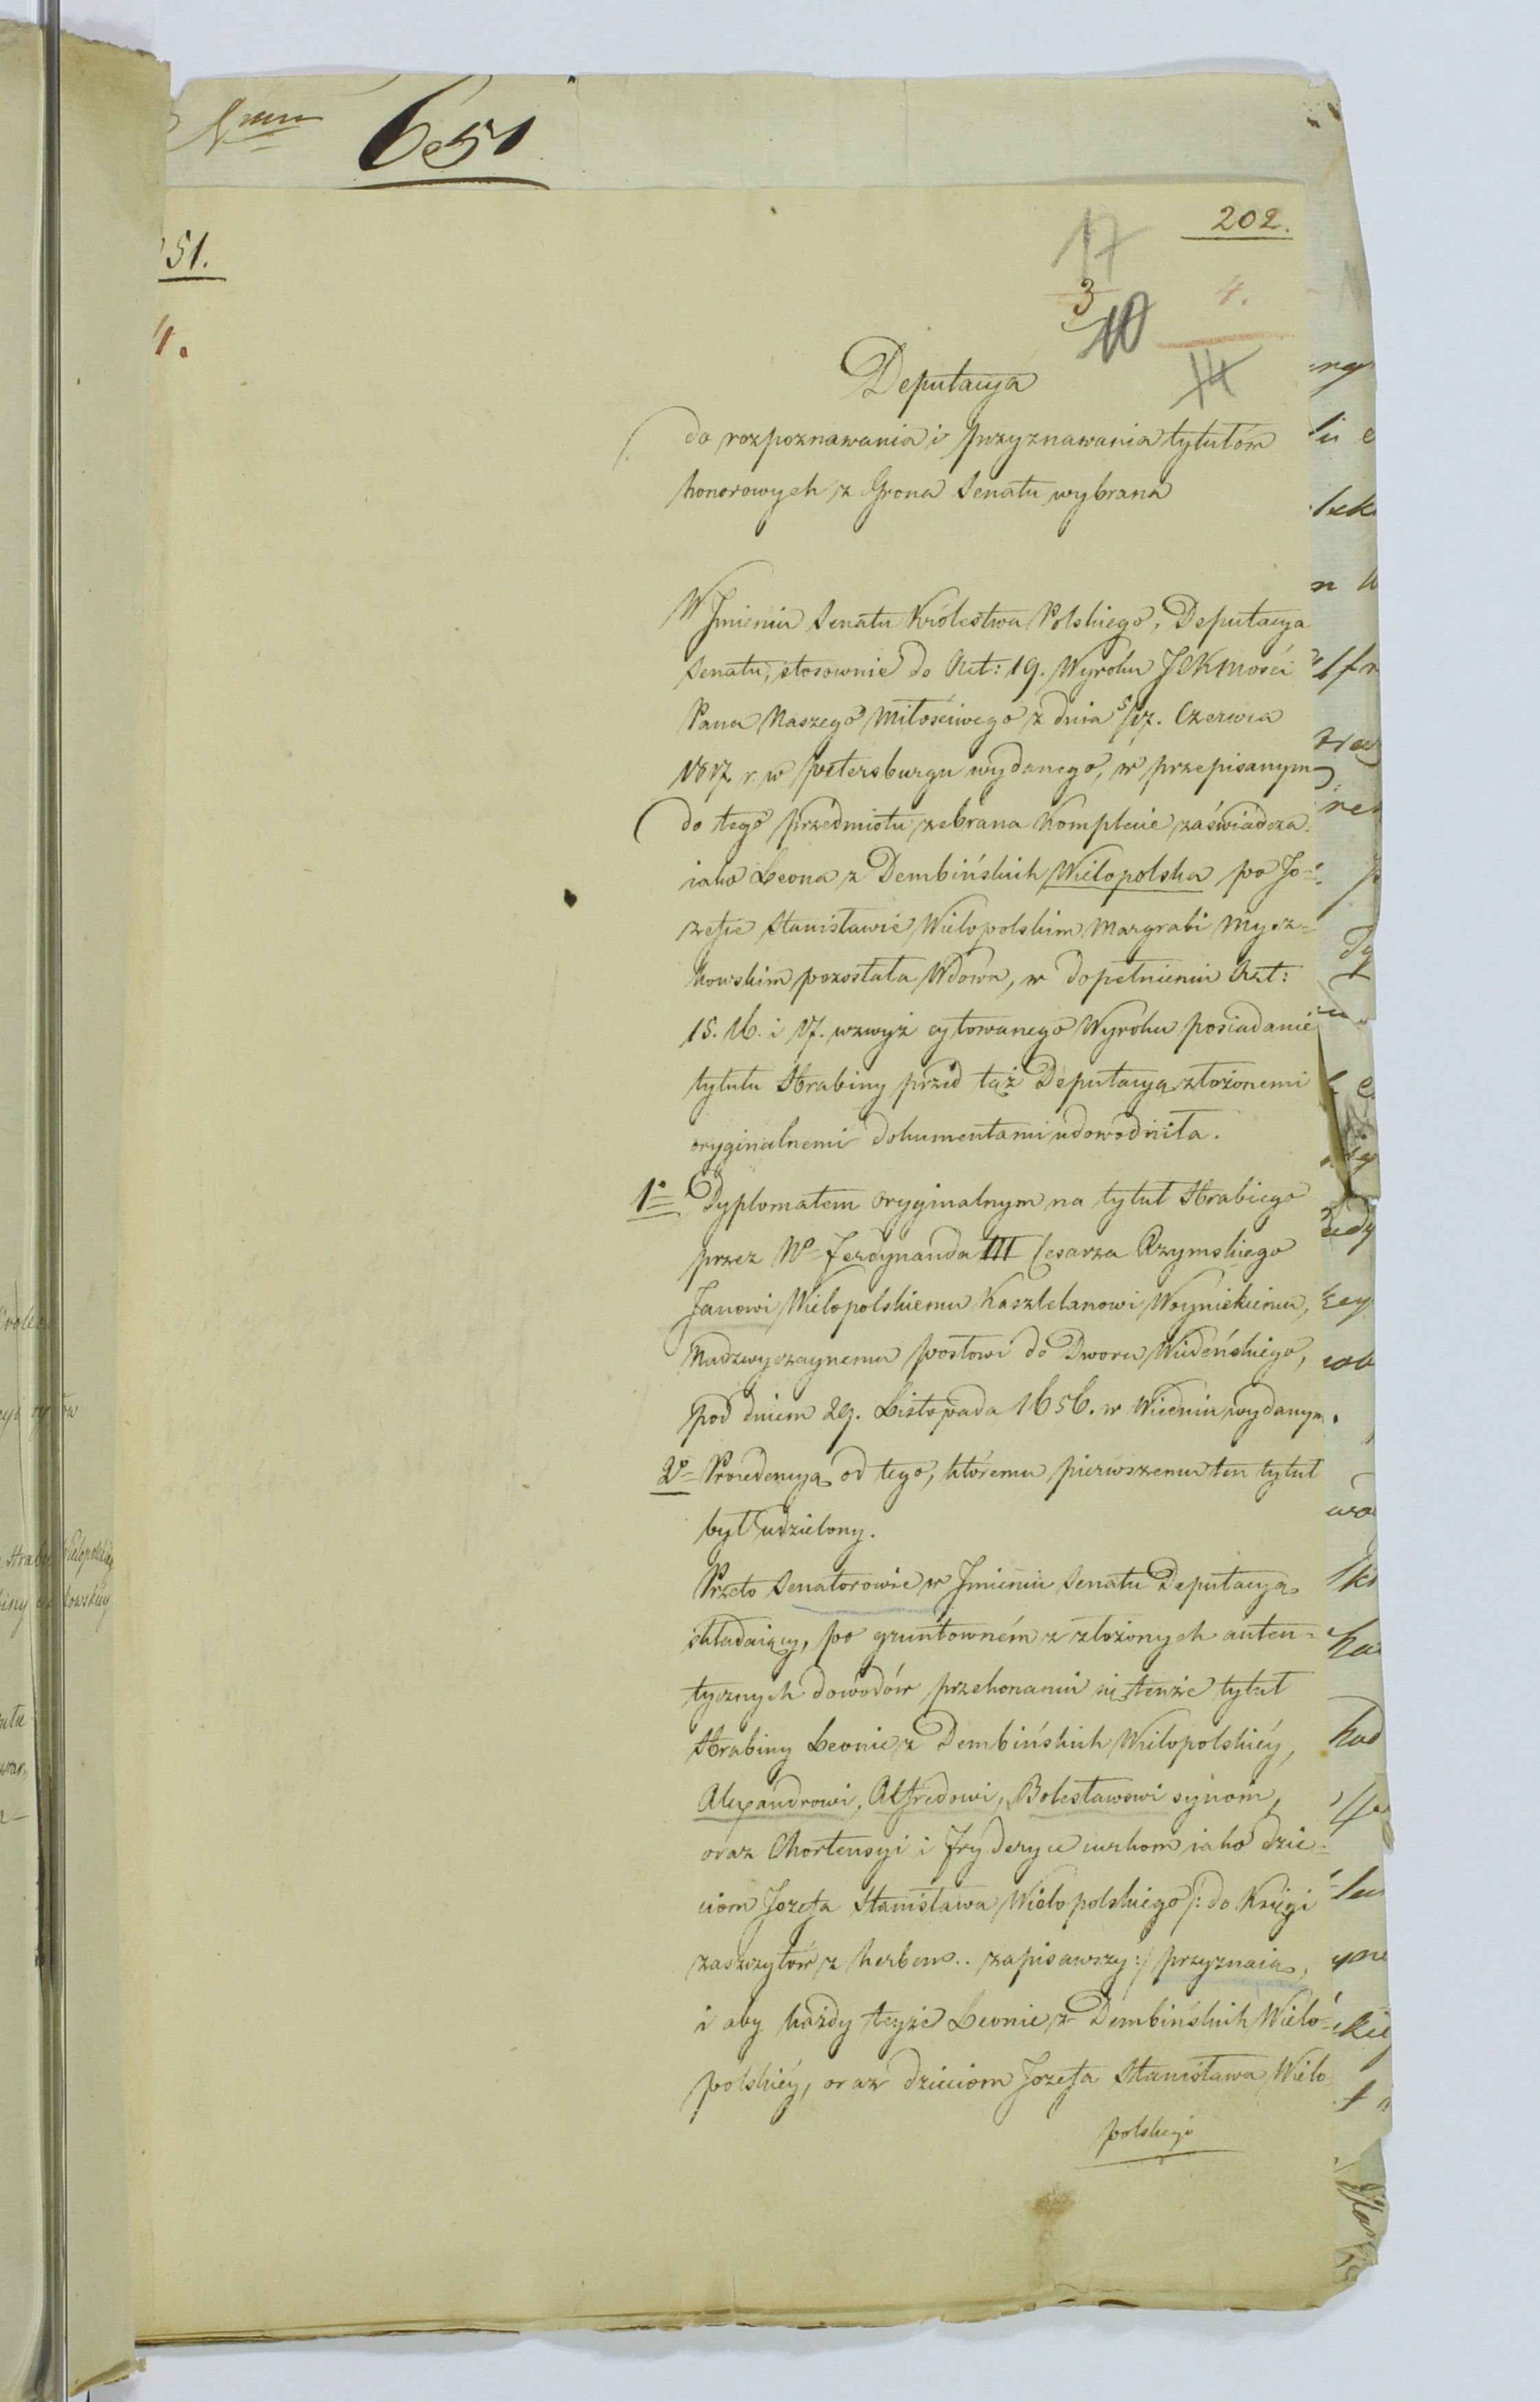 651
202.
51.
17
3
4.
4.
10
Deputacya
do rozpoznawania i przyznawania tytułów
honorowych z Grona Senatu wybrana
W Jmieniu Senatu Królestwa Polskiego, Deputacya
Senatu, stosownie do Art: 19. Wyroku JCKMości
Pana Naszego Miłościwego z dnia 5/17. Czerwca
1817 r. w Petersburgu wydanego, w przepisanym
do tego przedmiotu zebrana Komplecie zaświadcza:
iako Leona z Dembińskich Wielopolska po Jo=
zefie Stanisławie Wielopolskim Margrabi Mysz=
kowskim pozostała Wdowa, w dopełnieniu Art:
15. 16. i 17. wzwyż cytowanego Wyroku posiadanie
tytułu Hrabiny przed tąż Deputacyą złożonemi
oryginalnemi dokumentami udowodniła.
1o Dyplomatem oryginalnym na tytuł Hrabiego
przez No Ferdynanda III Cesarza Rzymskiego
Janowi Wielopolskiemu Kasztelanowi Woynickiemu,
Nadzwyczaynemu posłowi do Dworu Wiedeńskiego,
pod dniem 29. Listopada 1656. w Wiedniu wydanym.
2o Procedencyą od tego, któremu pierwszemu ten tytuł
był udzielony.
Przeto Senatorowie w Jmieniu Senatu Deputacyą
składaiący, po gruntowném z złożonych auten=
tycznych dowodów przekonaniu się tenże tytuł
Hrabiny Leonie z Dembińskich Wielopolskiéy,
Alexandrowi, Alfredowi, Bolesławowi synom,
oraz Hortensyi i Fryderyce curkom iako dzie=
ciom Jozefa Stanisława Wielopolskiego /: do Księgi
zaszczytów z herbem.. zapisawszy :/ przyznaią,
i aby każdy teyże Leonie z Dembińskich Wielo=
polskiéy, oraz dzieciom Jozefa Stanisława Wielo
polskiego